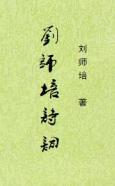 劉師培詩詞
刘师培 著